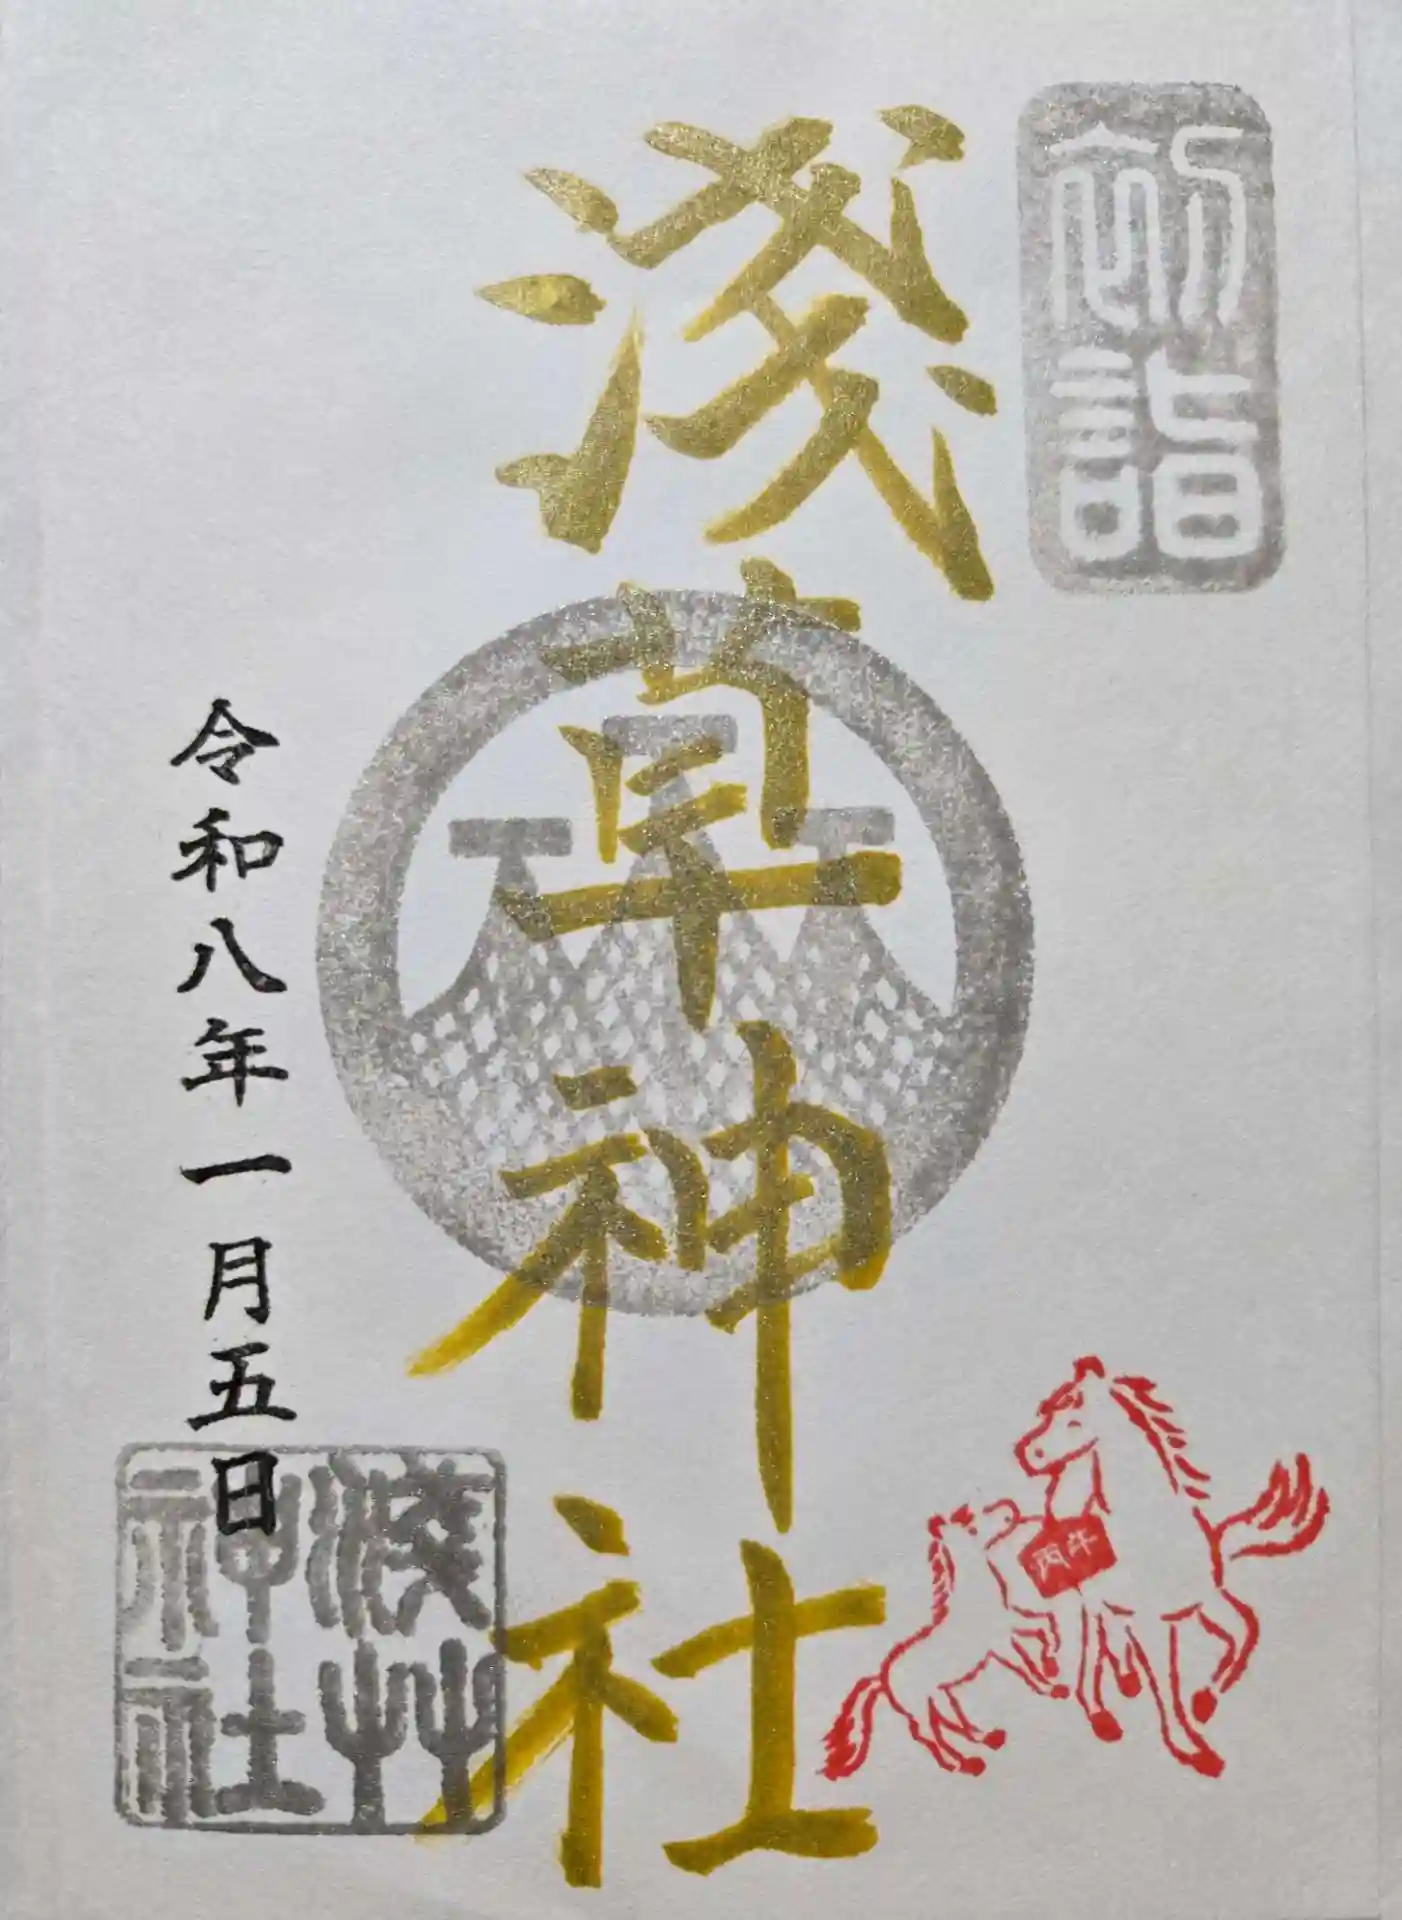 初詣
淺草神社
丙午
令和八年一月五日
淺艸
神社